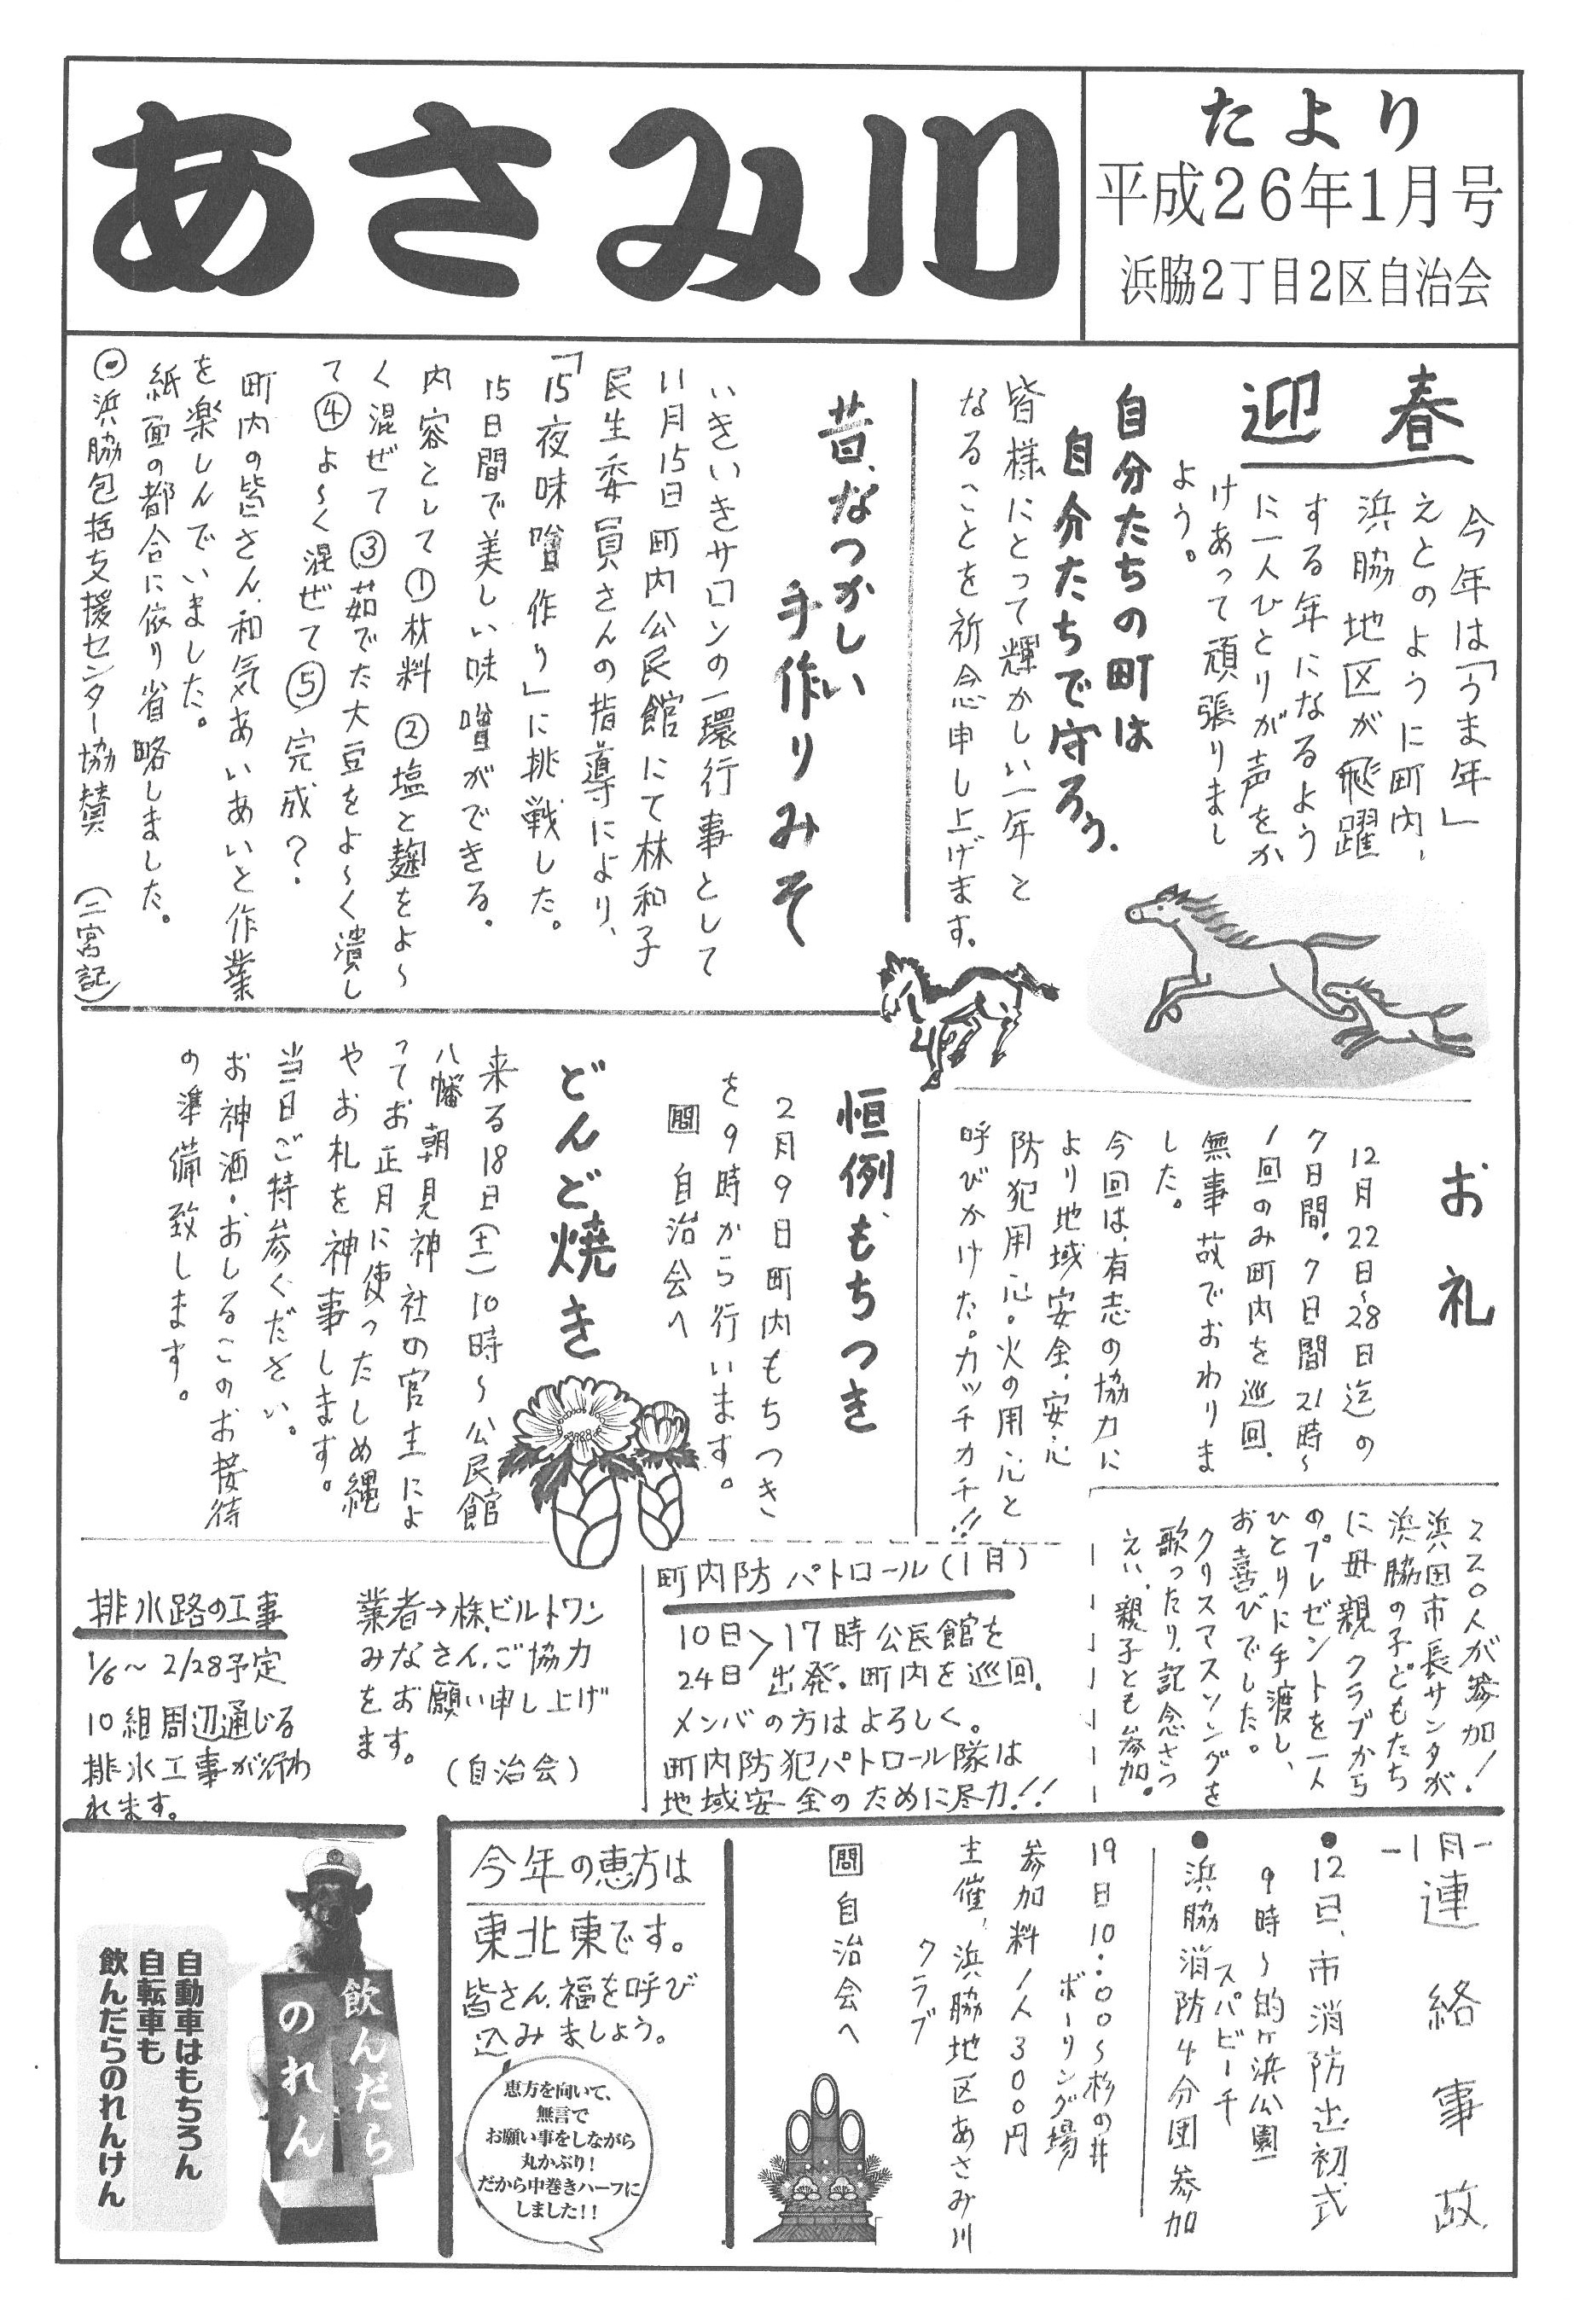 あさみ川
たより
平成26年1月号
浜脇2丁目2区自治会
迎春
今年は「うま年」
えとのように町内、
浜脇地区が飛躍
する年になるよう
に一人ひとりが声をか
けあって頑張りまし
ょう。
自分たちの町は
自分たちで守ろう.
皆様にとって輝かしい一年と
なることを祈念申し上げます。
昔、なつかしい
手作りみそ
いきいきサロンの一環行事として
11月15日町内公民館にて林和子
民生委員さんの指導により、
「15夜味噌作り」に挑戦した。
15日間で美しい味噌ができる。
内容として①材料②塩と麹をよ~
く混ぜて③茹でた大豆をよ~く潰し
て④よ~く混ぜて⑤完成?.
町内の皆さん、和気あいあいと作業
を楽しんでいました。
紙面の都合に依り省略しました。
⦿浜脇包括支援センター協賛 (二宮記)
お礼
12月22日~28日迄の
7日間。7日間21時~
1回のみ町内を巡回.
無事故でおわりま
した。
今回は、有志の協力に
より地域安全、安心
防犯用心。火の用心と
呼びかけた。カッチカチ!!
恒例、もちつき
2月9日町内もちつき
を9時から行います。
問 自治会へ
どんど焼き
来る18日(土)10時~公民館
八幡朝見神社の宮主によ
ってお正月に使ったしめ縄
やお札を神事します。
当日ご持参ください。
お神酒・おしるこのお接待
の準備致します。
220人が参加!
浜田市長サンタが
浜脇の子どもたち
に母親クラブから
のプレゼントを一人
ひとりに手渡し、
お喜びでした。
クリスマスソングを
歌ったり、記念さつ
えい、親子とも参加。
町内防パトロール(1月)
10日>17時公民館を
24日 出発。町内を巡回.
メンバの方はよろしく。
町内防犯パトロール隊は
地域安全のために尽力!!
排水路の工事
1/6~2/28予定
10組周辺通じる
排水工事が行わ
れます。
業者→株.ビルトワン
みなさん、ご協力
をお願い申し上げ
ます。
(自治会)
-1月-連絡事故
●12日、市消防出初式
9時~的ヶ浜公園
スパビーチ
●浜脇消防4分団参加
19日10:00~杉の井
ボーリング場
参加料1人300円
主催、浜脇地区あさみ川
クラブ
問 自治会へ
今年の恵方は
東北東です。
皆さん、福を呼び
込みましょう。
恵方を向いて、
無言で
お願い事をしながら
丸かぶり!
だから中巻きハーフに
しました!!
飲んだら
のれん
自動車はもちろん
自転車も
飲んだらのれんけん